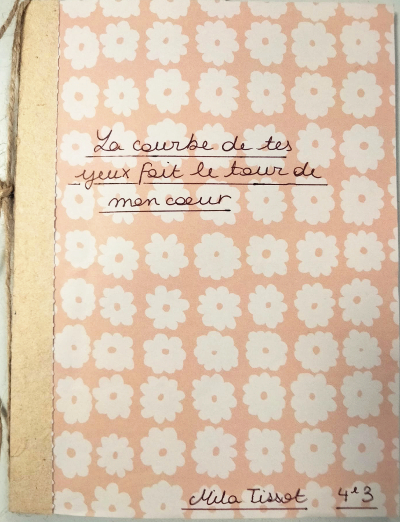 La courbe de tes
yeux fait le tour de
mon coeur
Mila Tissot 4e3